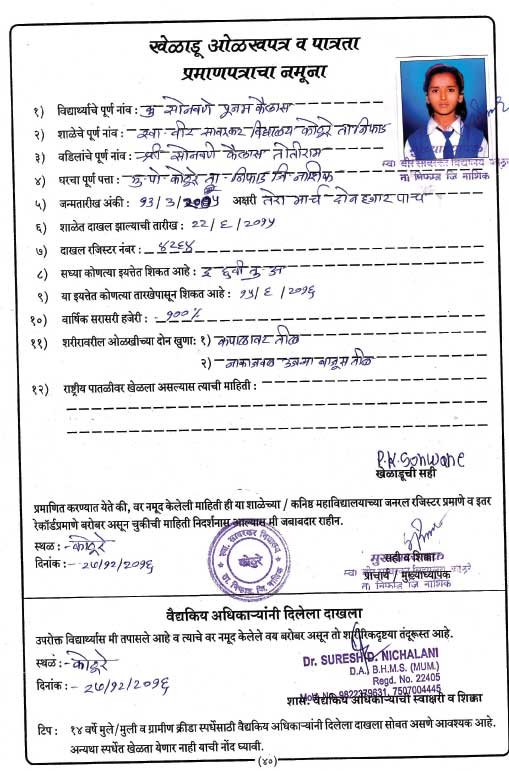 खेळाडू ओळखपत्र व पात्रता
प्रमाणपत्राचा नमूना
१) विद्यार्थ्याचे पूर्ण नांव : कु सोनवणे पूनम कैलास
२) शाळेचे पूर्ण नांव : स्वा वीर सावरकर विद्यालय कोठुरे ता निफाड
३) वडिलांचे पूर्ण नांव : श्री सोनवणे कैलास तोतीराम
४) घरचा पूर्ण पत्ता : मु पो कोठुरे ता - निफाड जि नाशिक
५) जन्मतारीख अंकी : १३/३/२००५ अक्षरी तेरा मार्च दोन हजार पाच
६) शाळेत दाखल झाल्याची तारीख : २२/६/२०१५
७) दाखल रजिस्टर नंबर : ४२६४
८) सध्या कोणत्या इयत्तेत शिकत आहे : इ ६वी तु अ
९) या इयत्तेत कोणत्या तारखेपासून शिकत आहे : १५/६/२०१६
१०) वार्षिक सरासरी हजेरी : १००%
११) शरीरावरील ओळखीच्या दोन खुणा: १) कपाळावर तीळ
२) नाकाजवळ उजव्या बाजूस तीळ
१२) राष्ट्रीय पातळीवर खेळला असल्यास त्याची माहिती :
मुख्याध्यापक
स्वा वीर सावरकर विद्यालय कोठुरे
ता निफाड जि नाशिक
P.K.Sonwane
खेळाडूची सही
प्रमाणित करण्यात येते की, वर नमूद केलेली माहिती ही या शाळेच्या / कनिष्ठ महाविद्यालयाच्या जनरल रजिस्टर प्रमाणे व इतर
रेकॉर्डप्रमाणे बरोबर असून चुकीची माहिती निदर्शनास आल्यास मी जबाबदार राहीन.
स्थळ :- कोठुरे
दिनांक :- २७/१२/२०१६
स्वा. सावरकर विद्यालय
कोठुरे
ता. निफाड, जि. नाशिक
सही व शिक्का
मुख्याध्यापक
स्वा वीर सावरकर विद्यालय कोठुरे
प्राचार्य / मुख्याध्यापक
ता निफाड जि नाशिक
वैद्यकिय अधिकाऱ्यांनी दिलेला दाखला
उपरोक्त विद्यार्थ्यास मी तपासले आहे व त्याचे वर नमूद केलेले वय बरोबर असून तो शारीरिकदृष्टया तंदूरूस्त आहे.
स्थळं :- कोठुरे
दिनांक :- २७/१२/२०१६
Dr. SURESH D. NICHALANI
D.A., B.H.M.S. (MUM.)
Regd. No. 22405
Mob. No. 9822379631, 7507004445
शास. वैद्यकिय अधिकाऱ्याची स्वाक्षरी व शिक्का
टिप : १४ वर्षे मुले/मुली व ग्रामीण क्रीडा स्पर्धेसाठी वैद्यकिय अधिकाऱ्यांनी दिलेला दाखला सोबत असणे आवश्यक आहे.
अन्यथा स्पर्धेत खेळता येणार नाही याची नोंद घ्यावी.
(४०)